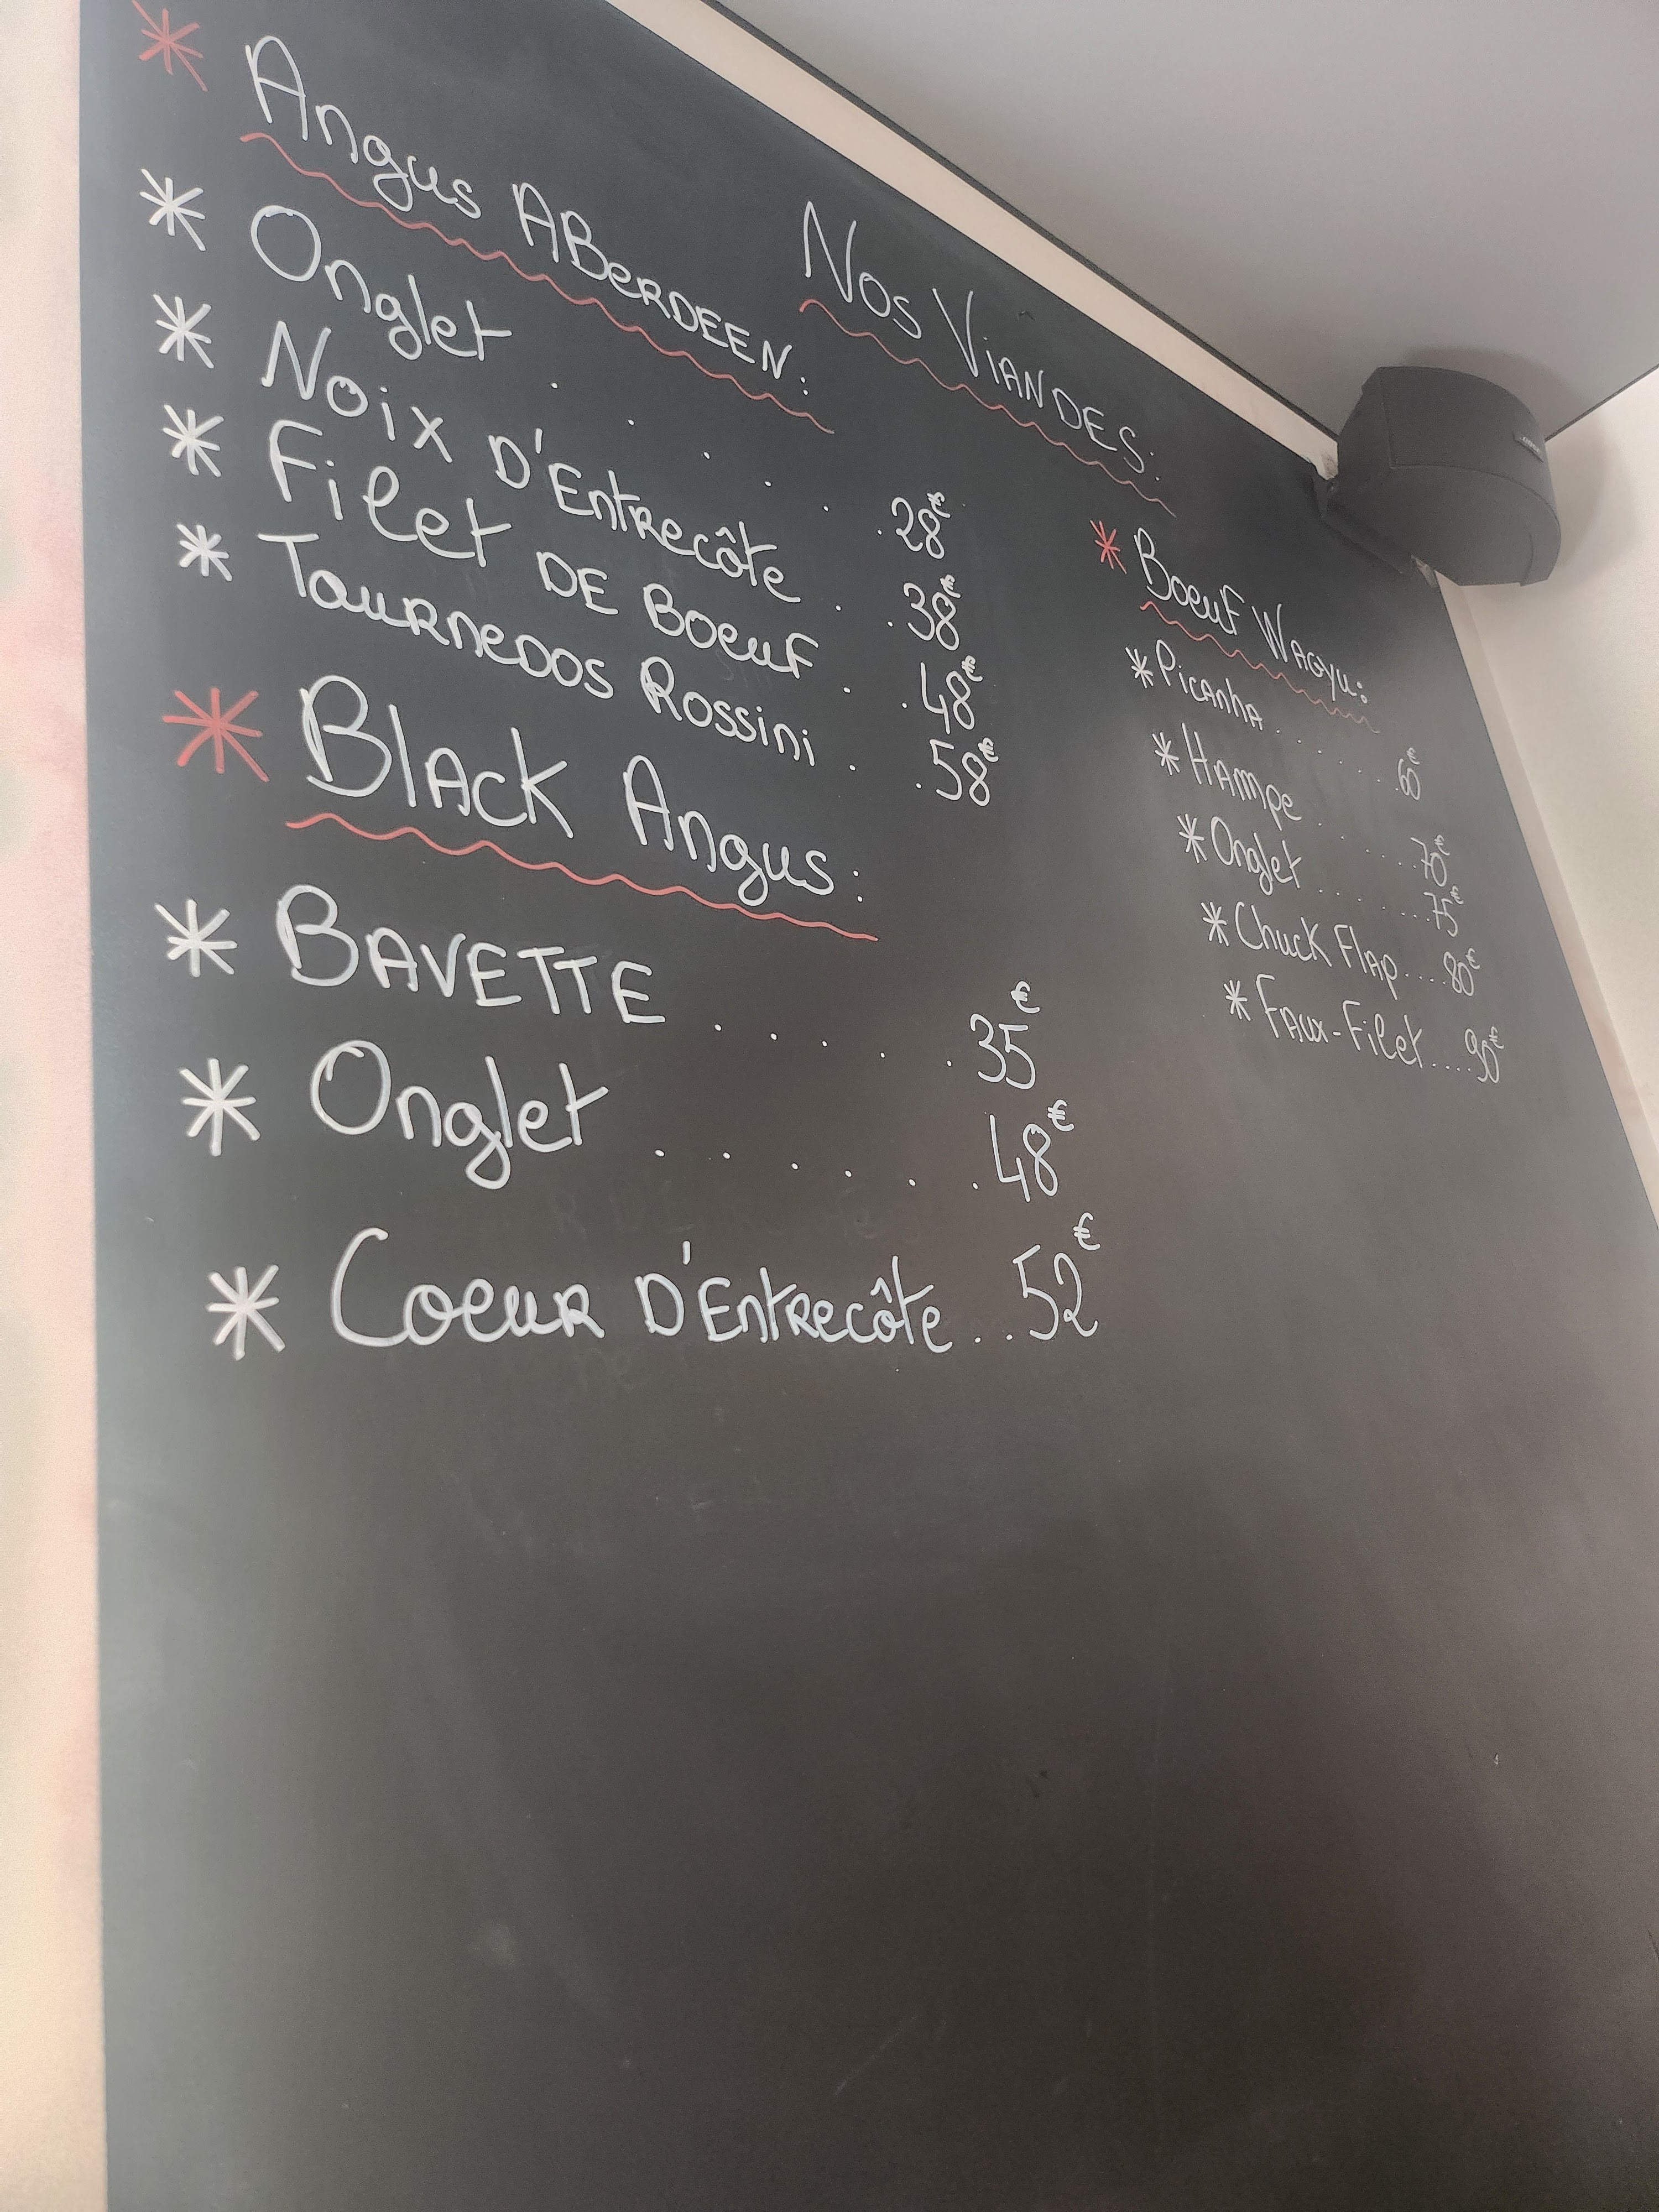 Nos Viandes:
* Angus Aberdeen:
* Onglet . . . . . . 28€
* Noix d'Entrecôte . . 38€
* Filet de Boeuf . . 48€
* Tournedos Rossini . . 58€
* Black Angus:
* BAVETTE . . . . . 35€
* Onglet . . . . . . 48€
* Coeur d'Entrecôte . . 52€
* Boeuf Wagyu:
* Picanha . . . . . . . 60€
* Hampe . . . . . . 70€
* Onglet . . . . . . . 75€
* Chuck Flap . . . 80€
* Faux-Filet . . . . 90€